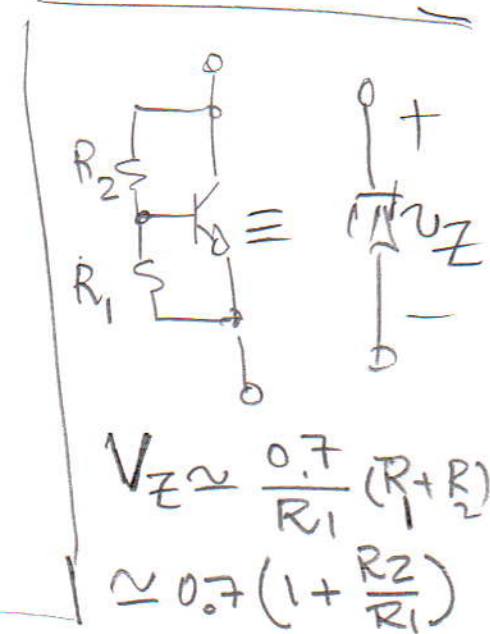 R₂
R₁
≡
+
υ_Z
−
V_Z ≃ 0.7/R₁ (R₁ + R₂)
≃ 0.7 (1 + R2/R1)